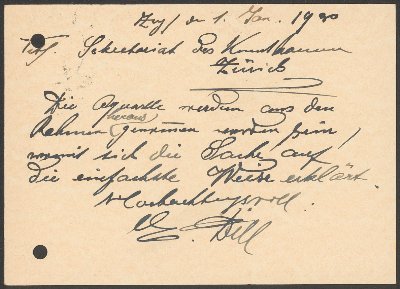 Zug, den 1. Jan. 1930
Tit. Sekretariat des Kunsthauses
Zürich
Die Aquarelle werden aus den
Rahmen heraus genommen worden sein,
womit sich die Sache auf
die einfachste Weise erklärt.
Hochachtungsvoll.
E. Dill